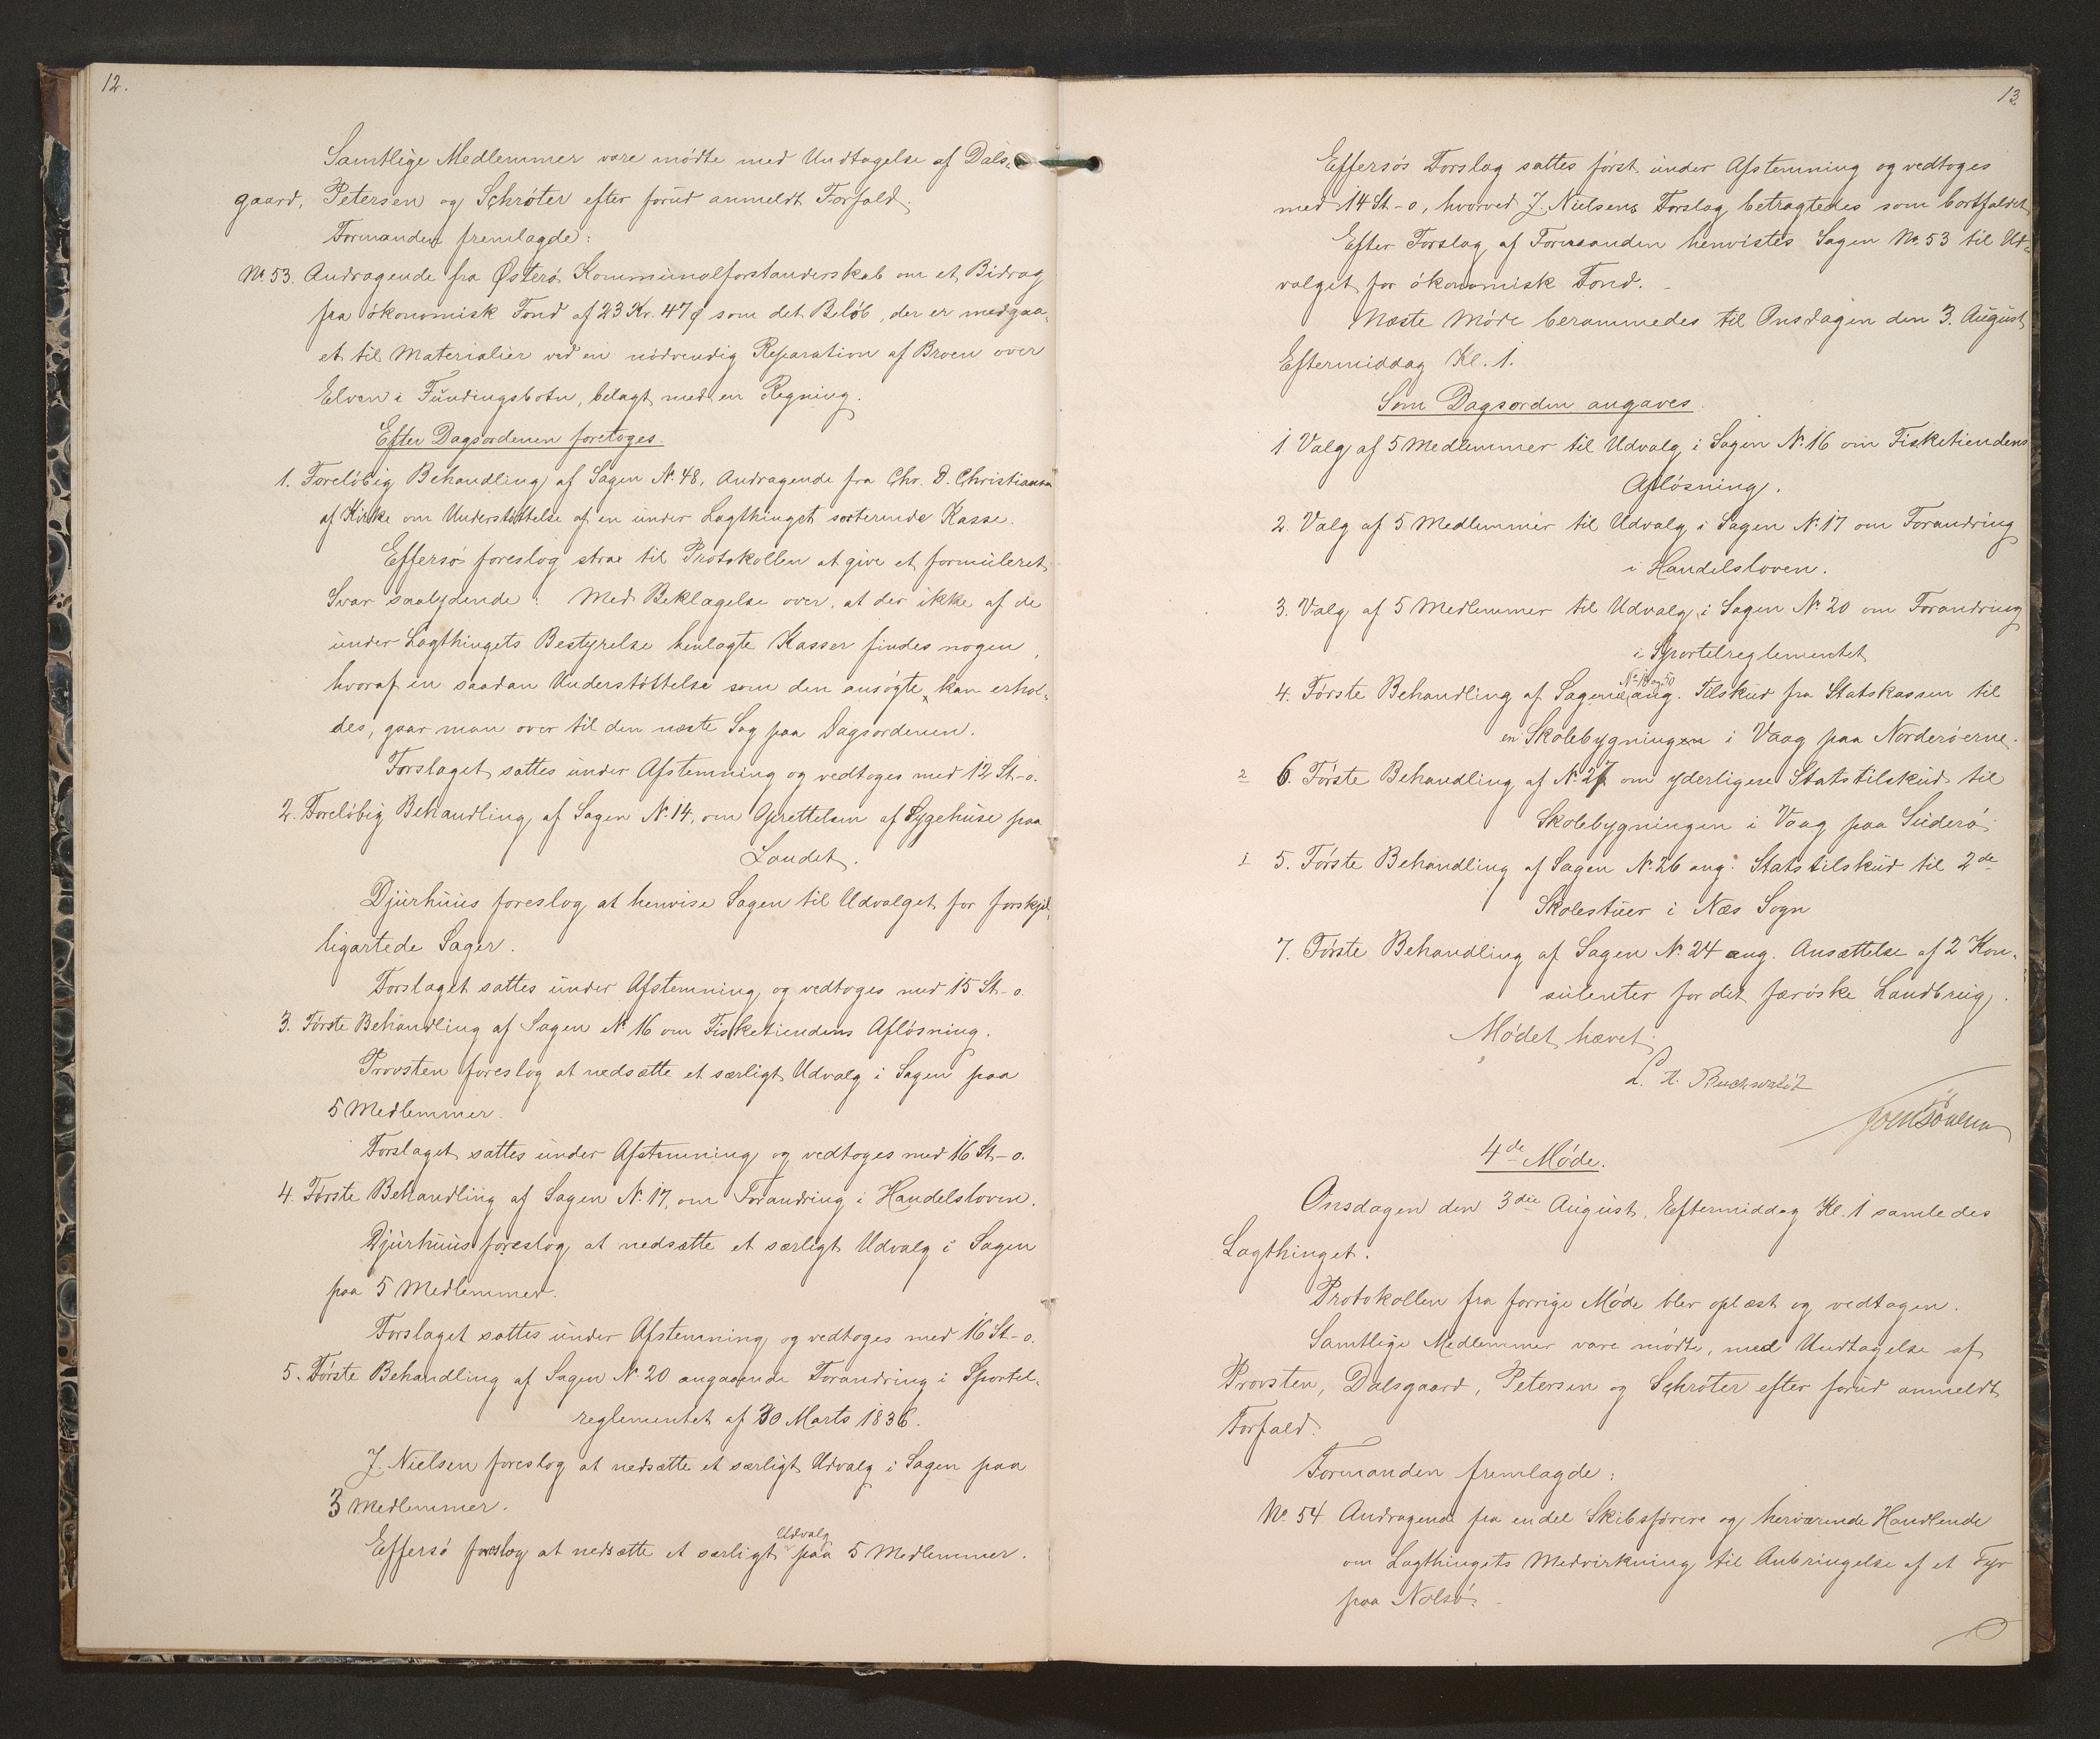 12.
Samtlige Medlemmer vare mødte med Undtagelse af Dals-
gaard, Petersen og Schrøter efter forud anmeldt Forfald.
Formanden fremlagde:
No. 53. Andragende fra Østerø Kommunalforstanderskab om et Bidrag
fra økonomisk Fond af 23 Kr. 47 ø som det Beløb, der er medgaa-
et til Materialier ved en nødvendig Reparation af Broen over
Elven i Fundingsbotn, bilagt med en Regning.
Efter Dagsordenen foretoges.
1. Foreløbig Behandling af Sagen No. 48, Andragende fra Chr. D. Christiansen
af Kirke om Understøttelse af en under Lagthinget sorterende Kasse.
Effersø foreslog strax til Protokollen at give et formuleret
Svar saalydende: Med Beklagelse over, at der ikke af de
under Lagthingets Bestyrelse henlagte Kasser findes nogen,
hvoraf en saadan Understøttelse som den ansøgte, kan erhol-
des, gaar man over til den næste Sag paa Dagsordenen.
Forslaget sattes under Afstemning og vedtoges med 12 St-0.
2. Foreløbig Behandling af Sagen No. 14, om Oprettelsen af Sygehuse paa
Landet.
Djurhuus foreslog at henvise Sagen til Udvalget for forskjel-
ligartede Sager.
Forslaget sattes under Afstemning og vedtoges med 15 St-0.
3. Første Behandling af Sagen No 16 om Fisketiendens Afløsning.
Provsten foreslog at nedsætte et særligt Udvalg i Sagen paa
5 Medlemmer.
Forslaget sattes under Afstemning og vedtoges med 16 St-0.
4. Første Behandling af Sagen No. 17, om Forandring i Handelsloven.
Djurhuus foreslog at nedsætte et særligt Udvalg i Sagen
paa 5 Medlemmer.
Forslaget sattes under Afstemning og vedtoges med 16 St-0.
5. Første Behandling af Sagen No 20 angaaende Forandring i Sportel-
reglementet af 30 Marts 1836.
J. Nielsen foreslog at nedsætte et særligt Udvalg i Sagen paa
3 Medlemmer.
Udvalg
Effersø foreslog at nedsætte et særligt paa 5 Medlemmer.
13.
Effersøs Forslag sattes først under Afstemning og vedtoges
med 14 St-0, hvorved J. Nielsens Forslag betragtedes som bortfaldet
Efter Forslag af Formanden henvistes Sagen No. 53 til Ud-
valget for økonomisk Fond.
Næste Møde berammedes til Onsdagen den 3. August
Eftermiddag Kl. 1.
Som Dagsorden angaves.
1 Valg af 5 Medlemmer til Udvalg i Sagen No. 16 om Fisketiendens
Afløsning.
2. Valg af 5 Medlemmer til Udvalg i Sagen No. 17 om Forandring
i Handelsloven.
3. Valg af 5 Medlemmer til Udvalg i Sagen No 20 om Forandring
i Sportelreglementet
4. Første Behandling af Sagerne ang. Tilskud fra Statskassen til
en Skolebygningen i Vaag paa Norderøerne.
2 6. Første Behandling af No. 27 om yderligere Statstilskud til
Skolebygningen i Vaag paa Suderø.
1 5. Første Behandling af Sagen No. 26 ang. Statstilskud til 2de
Skolestuer i Næs Sogn
7. Første Behandling af Sagen No. 24 ang. Ansættelse af 2 Kon-
sulenter for det færøske Landbrug.
Mødet hævet.
L. A. Buchwaldt
4de Møde.
Onsdagen den 3die August, Eftermiddag Kl. 1 samledes
Lagthinget.
Protokollen fra forrige Møde blev oplæst og vedtagen.
Samtlige Medlemmer vare mødte, med Undtagelse af
Provsten, Dalsgaard, Petersen og Schrøter efter forud anmeldt
Forfald.
Formanden fremlagde:
No. 54 Andragende fra endel Skibsførere og herværende Handlende
om Lagthingets Medvirkning til Anbringelse af et Fyr
paa Nolsø.